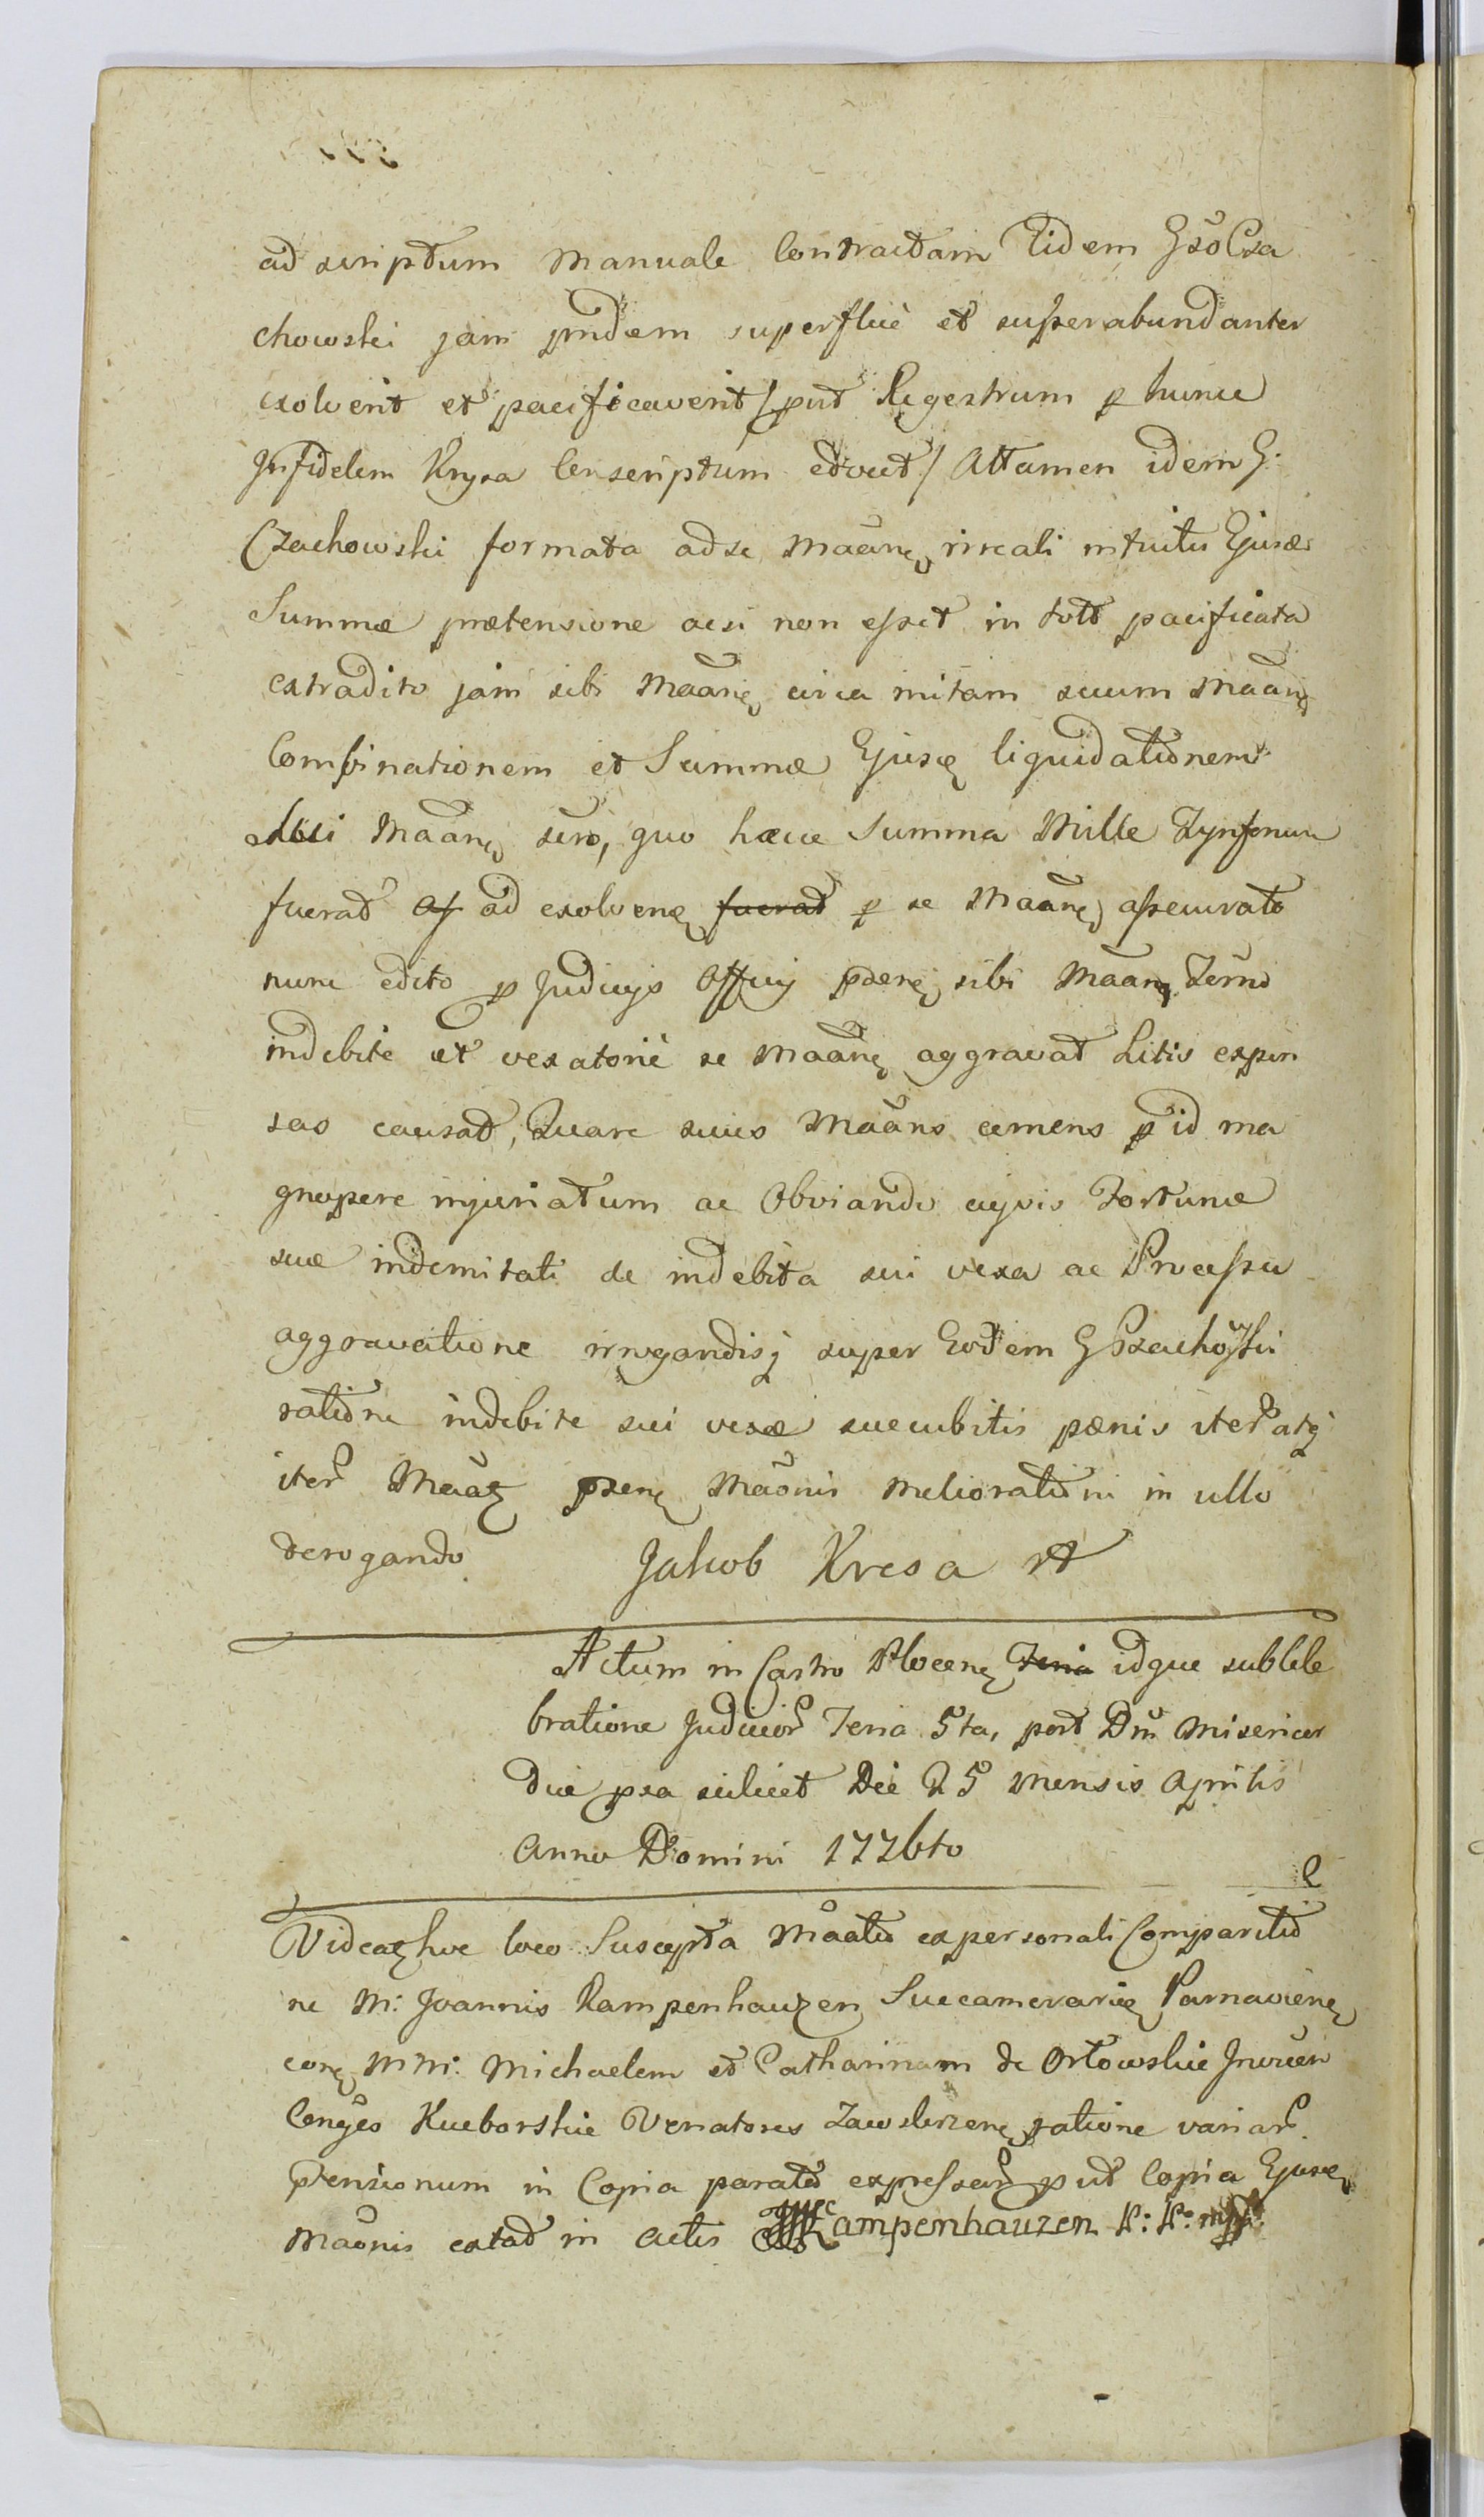 ad scriptum Manuale Contractam Eidem Gso Cza
chowski jam pridem superflue et superabundanter
exolverit et pacificaverit / put Regestrum p hunc
Infidelem Krysa Conscriptum edocet / Attamen idem G:
Czachowski formata ad se Maane viscali intuitu Ejusd
Summæ prætensione acsi non esset in toto pacificata
extradito jam sibi Maane circa initam secum Maane
Combinationem et Summæ Ejusd liquidationem
sui Maane sero, quo hæcce Summa Mille Tynfonum
fuerat ad exolvend fuerat p se Maane assecurato
nunc edito p Judicijs Officij psene sibi Maane Termo
indebite et vexatorie se Maane aggravat Litis expen
sas causat, Quare suus Maans cernens p id ma
gnopere injuriatum ac Obviando cujvis Fortunæ
suæ indemitati de indebita sui vexa ac Processu
aggravatione irrogandisq super Eodem G Czachowski
ratione indebite sui vexæ succubitis pænis iter atq
iter Maaz psene Maonis Meliorationi in ullo
derogando Jakob Kresa
Actum in Castro Plocene Feria idque sub Cele
bratione Judicior Feria 5ta, post Dm Misericor
diæ pxa scilicet Die 25 Mensis Aprilis
Anno Domini 1776to
Videaz hoc loco Suscepta Maatio ex personali Comparitio
ne M: Joannis Kampenhauzen Succamerarie Parnaviene
cone M M: Michaelem et Catharinam de Orłowskie Invicen
Conges Kuczborskie Venatores Zawskrzene ratione variar
ptensionum in Copia parata expressar put Copia Ejusd
Maonis extat in Actis Campenhauzen P: P: mpp